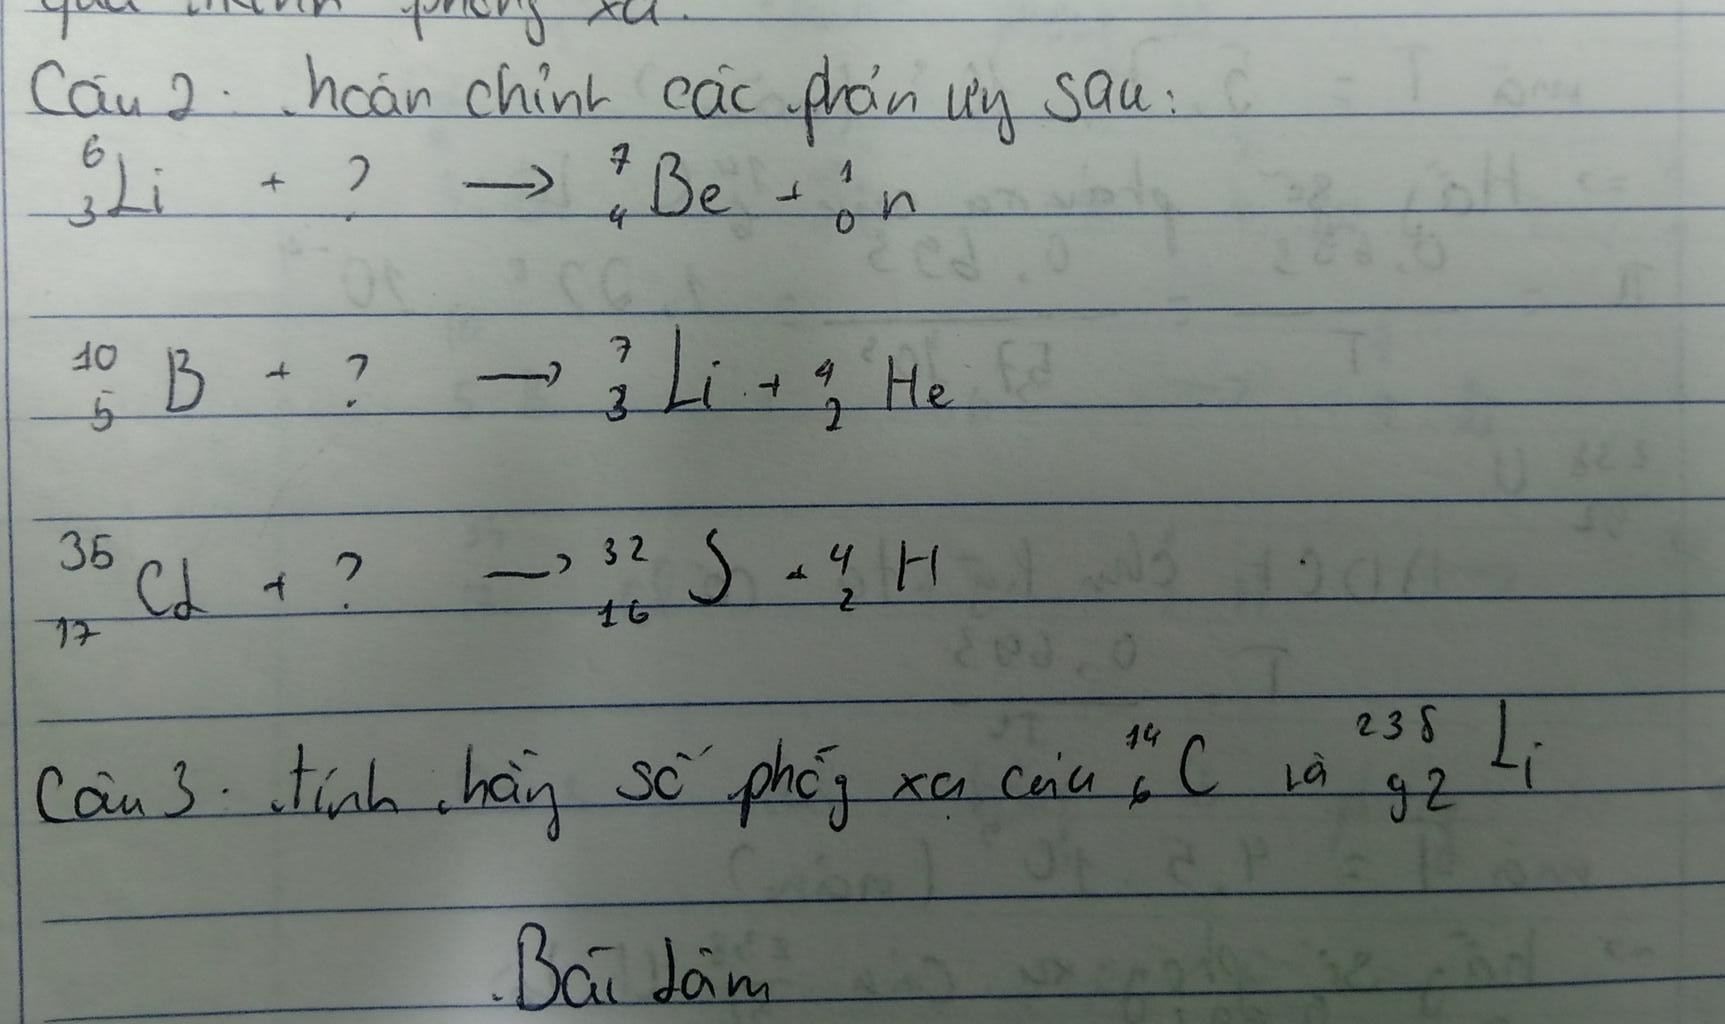 quá trình phóng xạ.
Câu 2. hoàn chỉnh các phản ứng sau:
⁶₃Li + ? → ⁷₄Be + ¹₀n
¹⁰₅B + ? → ⁷₃Li + ⁴₂He
³⁵₁₇Cl + ? → ³²₁₆S + ⁴₂H
Câu 3. tính hằng số phóng xạ của ¹⁴₆C và ²³⁸₉₂Li
Bài làm